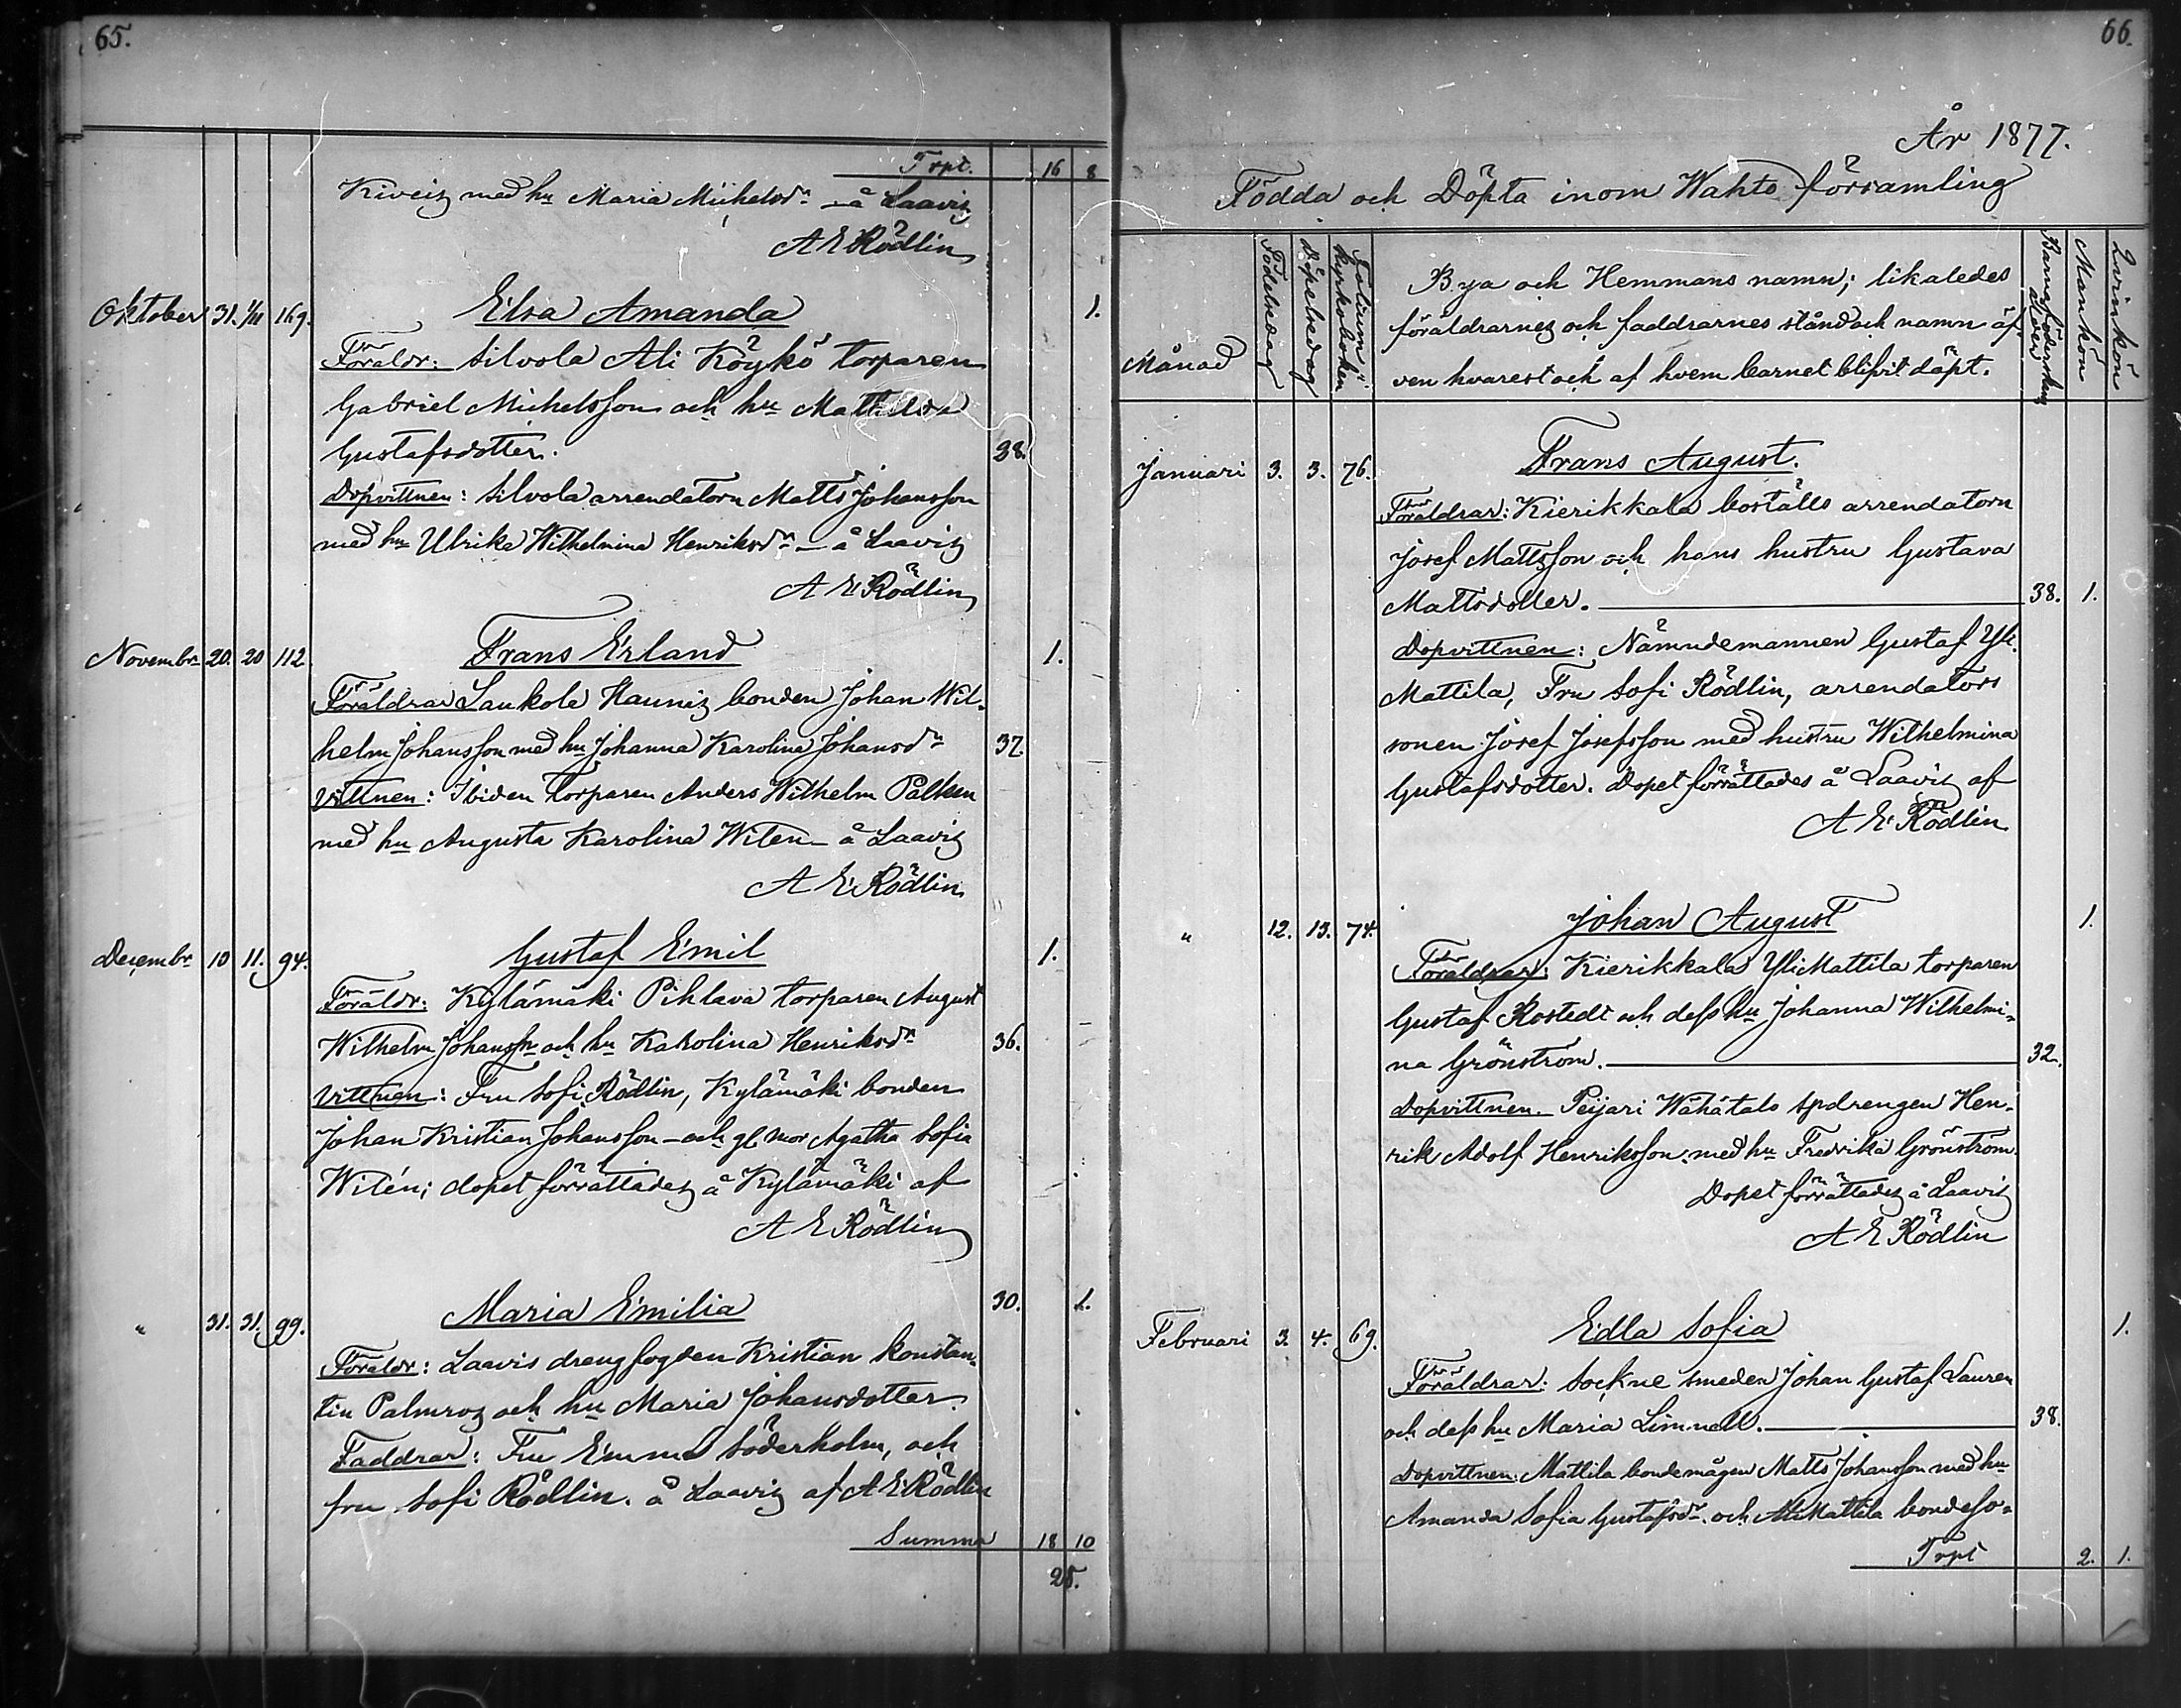 65.
Trpt. 16 8
Kiveis med hu Maria Michelsdr – å Laavis
A E Rödlin
Oktober 31. 1/11 169. Elsa Amanda 1.
Föräldr: Silvola Ali Köykö torparen
Gabriel Michelsson och hu Mathilda
Gustafsdotter. 38.
Dopvittnen: Silvola arrendatorn Matts Johansson
med hu Ulrika Wilhelmina Henriksdr – å Laavis
A E Rödlin
Novembr 20. 20 112 Frans Erland 1.
Föräldrar Laukola Haunis bonden Johan Wil-
helm Johansson med hu Johanna Karolina Johansdr 37.
Vittnen: Ibiden torparen Anders Wilhelm Palken
med hu Augusta Karolina Witen – å Laavis
A E Rödlin
Decembr 10 11. 94. Gustaf Emil 1.
Föräldr: Kylämäki Pihlava torparen August
Wilhelm Johanssn och hu Karolina Henriksdr 36.
Vittnen: Fru Sofi Rödlin, Kylämäki bonden
Johan Kristian Johansson – och gl. mor Agatha Sofia
Witén; dopet förrättades å Kylämäki af
A E Rödlin
" 31. 31. 99. Maria Emilia 30. 1.
Föräldr: Laavis drengfogden Kristian Konstan-
tin Palmros och hu Maria Johansdotter.
Faddrar: Fru Emma Söderholm, och
fru Sofi Rödlin. å Laavis af A E Rödlin
Summa 18 10
28.
66.
År 1877.
Födda och Döpta inom Wahto församling
Månad
Födelsedag
Döpelsedag
Folium i kyrkoboken
Bya och Hemmans namn; likaledes
föräldrarnes och faddrarnes stånd och namn äf-
ven hvarest och af hvem barnet blifvit döpt.
Barnaföderskans ålder
Mankön
Qvinkön
Januari 3. 3. 76. Frans August.
Föräldrar: Kierikkala boställs arrendatorn
Josef Mattsson och hans hustru Gustava
Mattsdotter. 38. 1.
Dopvittnen: Nämndemannen Gustaf Yli-
Mattila, Fru Sofi Rödlin, arrendators
sonen Josef Josefsson med hustru Wilhelmina
Gustafsdotter. Dopet förrättades å Laavis af
A E Rödlin
" 12. 13. 74. Johan August 1.
Föräldrar: Kierikkala YliMattila torparen
Gustaf Rostedt och dess hu Johanna Wilhelmi-
na Grönström. 32.
Dopvittnen. Peijari Wähätalo spdrengen Hen-
rik Adolf Henriksson med hu Fredrika Grönström.
Dopet förrättades å Laavis
A E Rödlin
Februari 3. 4. 69. Edla Sofia 1.
Föräldrar: Sockne smeden Johan Gustaf Lauren
och dess hu Maria Limnell. 38.
Dopvittnen: Mattila bondemågen Matts Johansson med hu
Amanda Sofia Gustafsdr och AliMattila bondeso-
Trpt 2. 1.